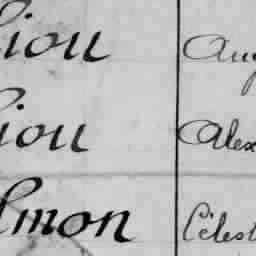 iou Aug
iou Alex
lmon Célest